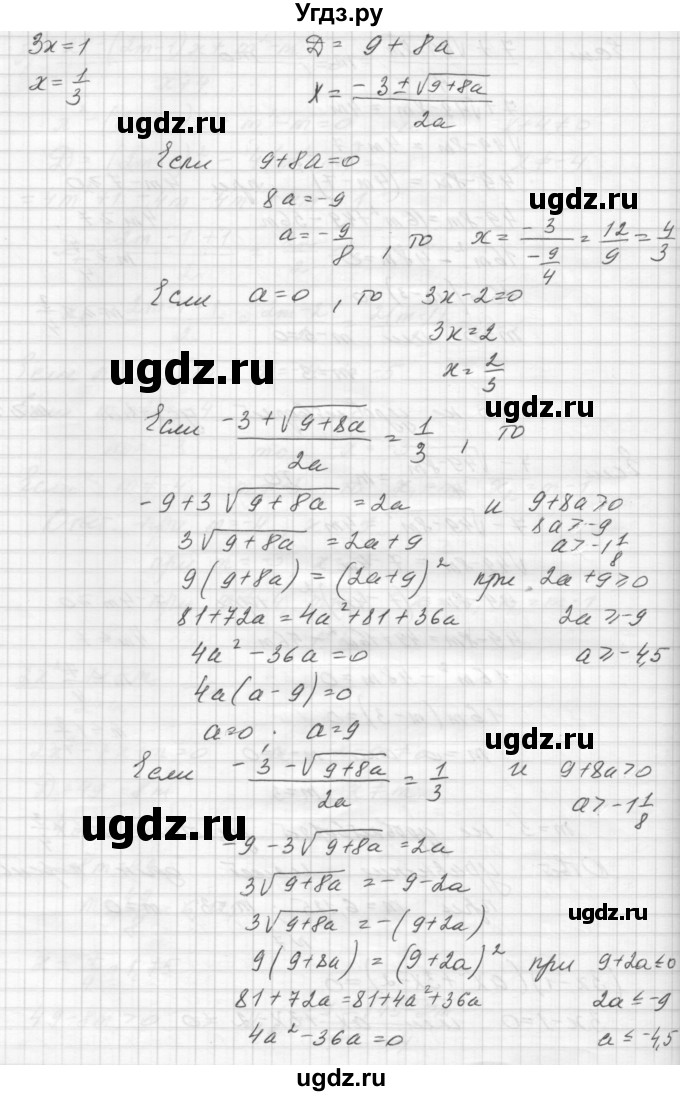 Угдз.ру
3x=1   Д= 9+8a
x=1/3   X=(-3±√(9+8a))/2a
ugdz.ru
Если 9+8a=0
8a=-9
ugdz.ru
a=-9/8, то x=-3/(-9/4)=12/9=4/3
Если a=0, то 3x-2=0
3x=2
ugdz.ru
x=2/3
ugdz.ru
Если (-3+√(9+8a))/2a=1/3, то
-9+3√(9+8a)=2a и 9+8a>0
8a>-9
3√(9+8a)=2a+9   a>-1 1/8
9(9+8a)=(2a+9)² при 2a+9≥0
81+72a=4a²+81+36a   2a≥-9
4a²-36a=0   a≥-4,5
4a(a-9)=0
a=0, a=9
ugdz.ru
Если (-3-√(9+8a))/2a=1/3 и 9+8a>0
a>-1 1/8
ugdz.ru
-9-3√(9+8a)=2a
3√(9+8a)=-9-2a
3√(9+8a)=-(9+2a)
ugdz.ru
9(9+8a)=(9+2a)² при 9+2a≤0
81+72a=81+4a²+36a   2a≤-9
4a²-36a=0   a≤-4,5
ugdz.ru